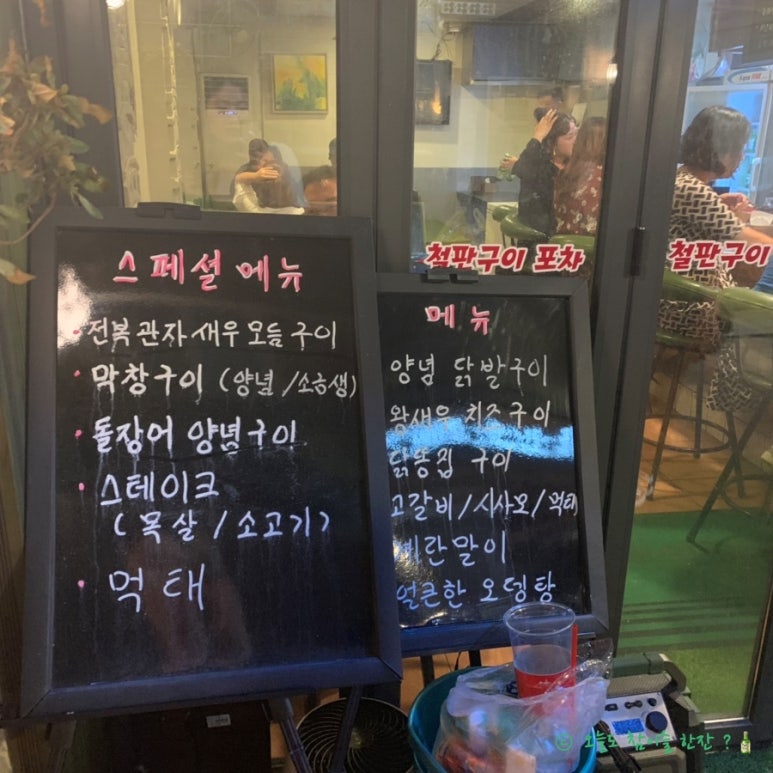 스페셜 메뉴
· 전복 관자 새우 모듬 구이
· 막창구이 (양념/소금생)
· 돌장어 양념구이
· 스테이크
(목살/소고기)
· 먹태
철판구이 포차
메뉴
양념 닭발구이
왕새우 치즈구이
닭똥집 구이
고갈비/시사모/먹태
계란말이
얼큰한 오뎅탕
철판구이
오늘도 참이슬 한잔 ?